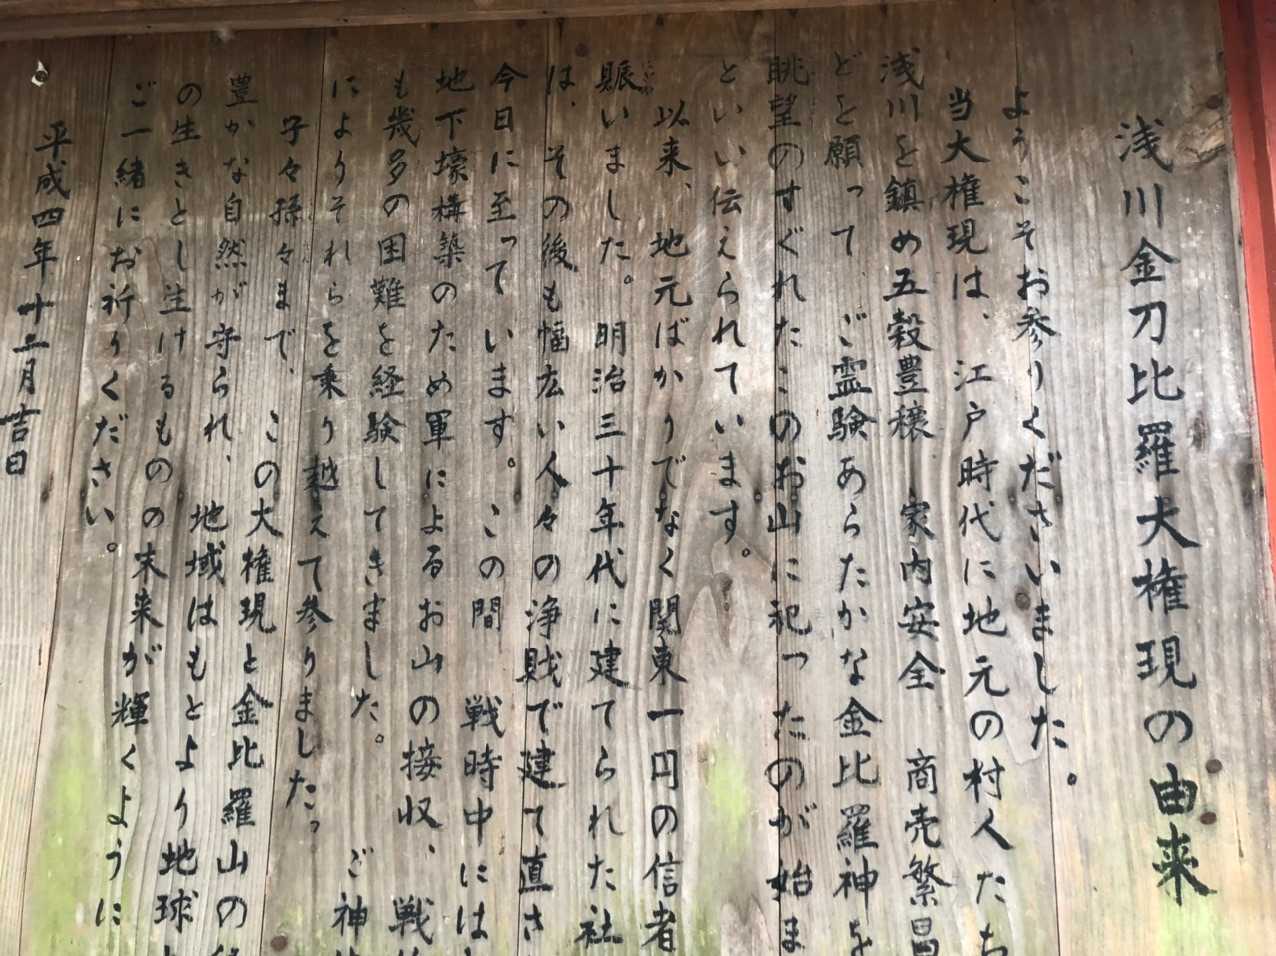 浅川金刀比羅大権現の由来
ようこそお参りくださいました。
当大権現は、江戸時代に地元の村人たち
浅川を鎮め五穀豊穣 家内安全 商売繁昌
どを願って、ご霊験あらたかな金比羅神を
眺望のすぐれたこのお山に祀ったのが始ま
といい伝えられています。
以来、地元ばかりでなく関東一円の信者
賑いました。明治三十年代に建てられた社
は、その後も幅広い人々の浄財で建て直さ
今日に至っています。この間 戦時中には
地下壕構築のため軍によるお山の接収、戦
も幾多の困難を経験してきました。ご神
によりそれらを乗り越えて参りました。
子々孫々まで、この大権現と金比羅山の
豊かな自然が守られ、地域はもとより地球
の生きとし生けるものの末来が輝くように
ご一緒にお祈りください。
平成四年十二月吉日